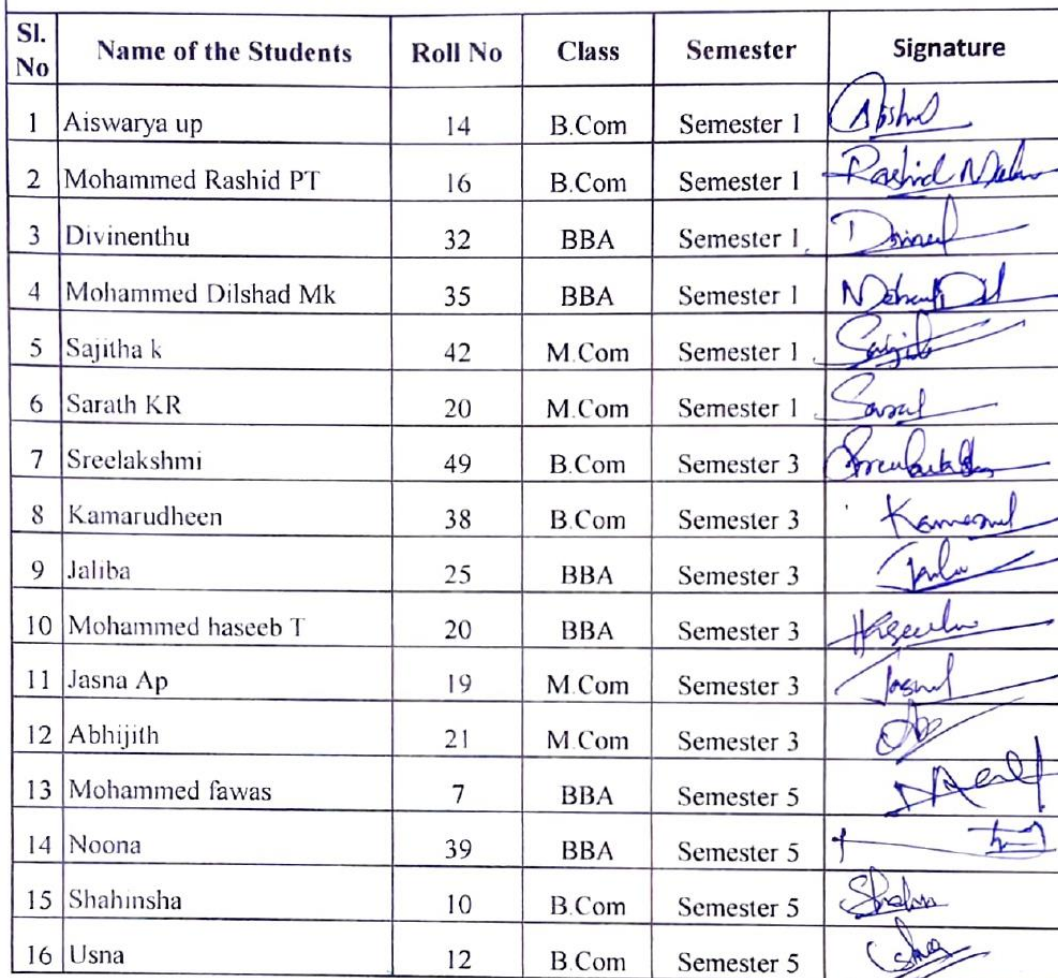 Sl. No Name of the Students Roll No Class Semester Signature
1 Aiswarya up 14 B.Com Semester 1
2 Mohammed Rashid PT 16 B.Com Semester 1 Rashid
3 Divinenthu 32 BBA Semester 1
4 Mohammed Dilshad Mk 35 BBA Semester 1
5 Sajitha k 42 M.Com Semester 1
6 Sarath KR 20 M.Com Semester 1
7 Sreelakshmi 49 B.Com Semester 3
8 Kamarudheen 38 B.Com Semester 3
9 Jaliba 25 BBA Semester 3
10 Mohammed haseeb T 20 BBA Semester 3
11 Jasna Ap 19 M.Com Semester 3
12 Abhijith 21 M.Com Semester 3
13 Mohammed fawas 7 BBA Semester 5
14 Noona 39 BBA Semester 5
15 Shahinsha 10 B.Com Semester 5
16 Usna 12 B.Com Semester 5